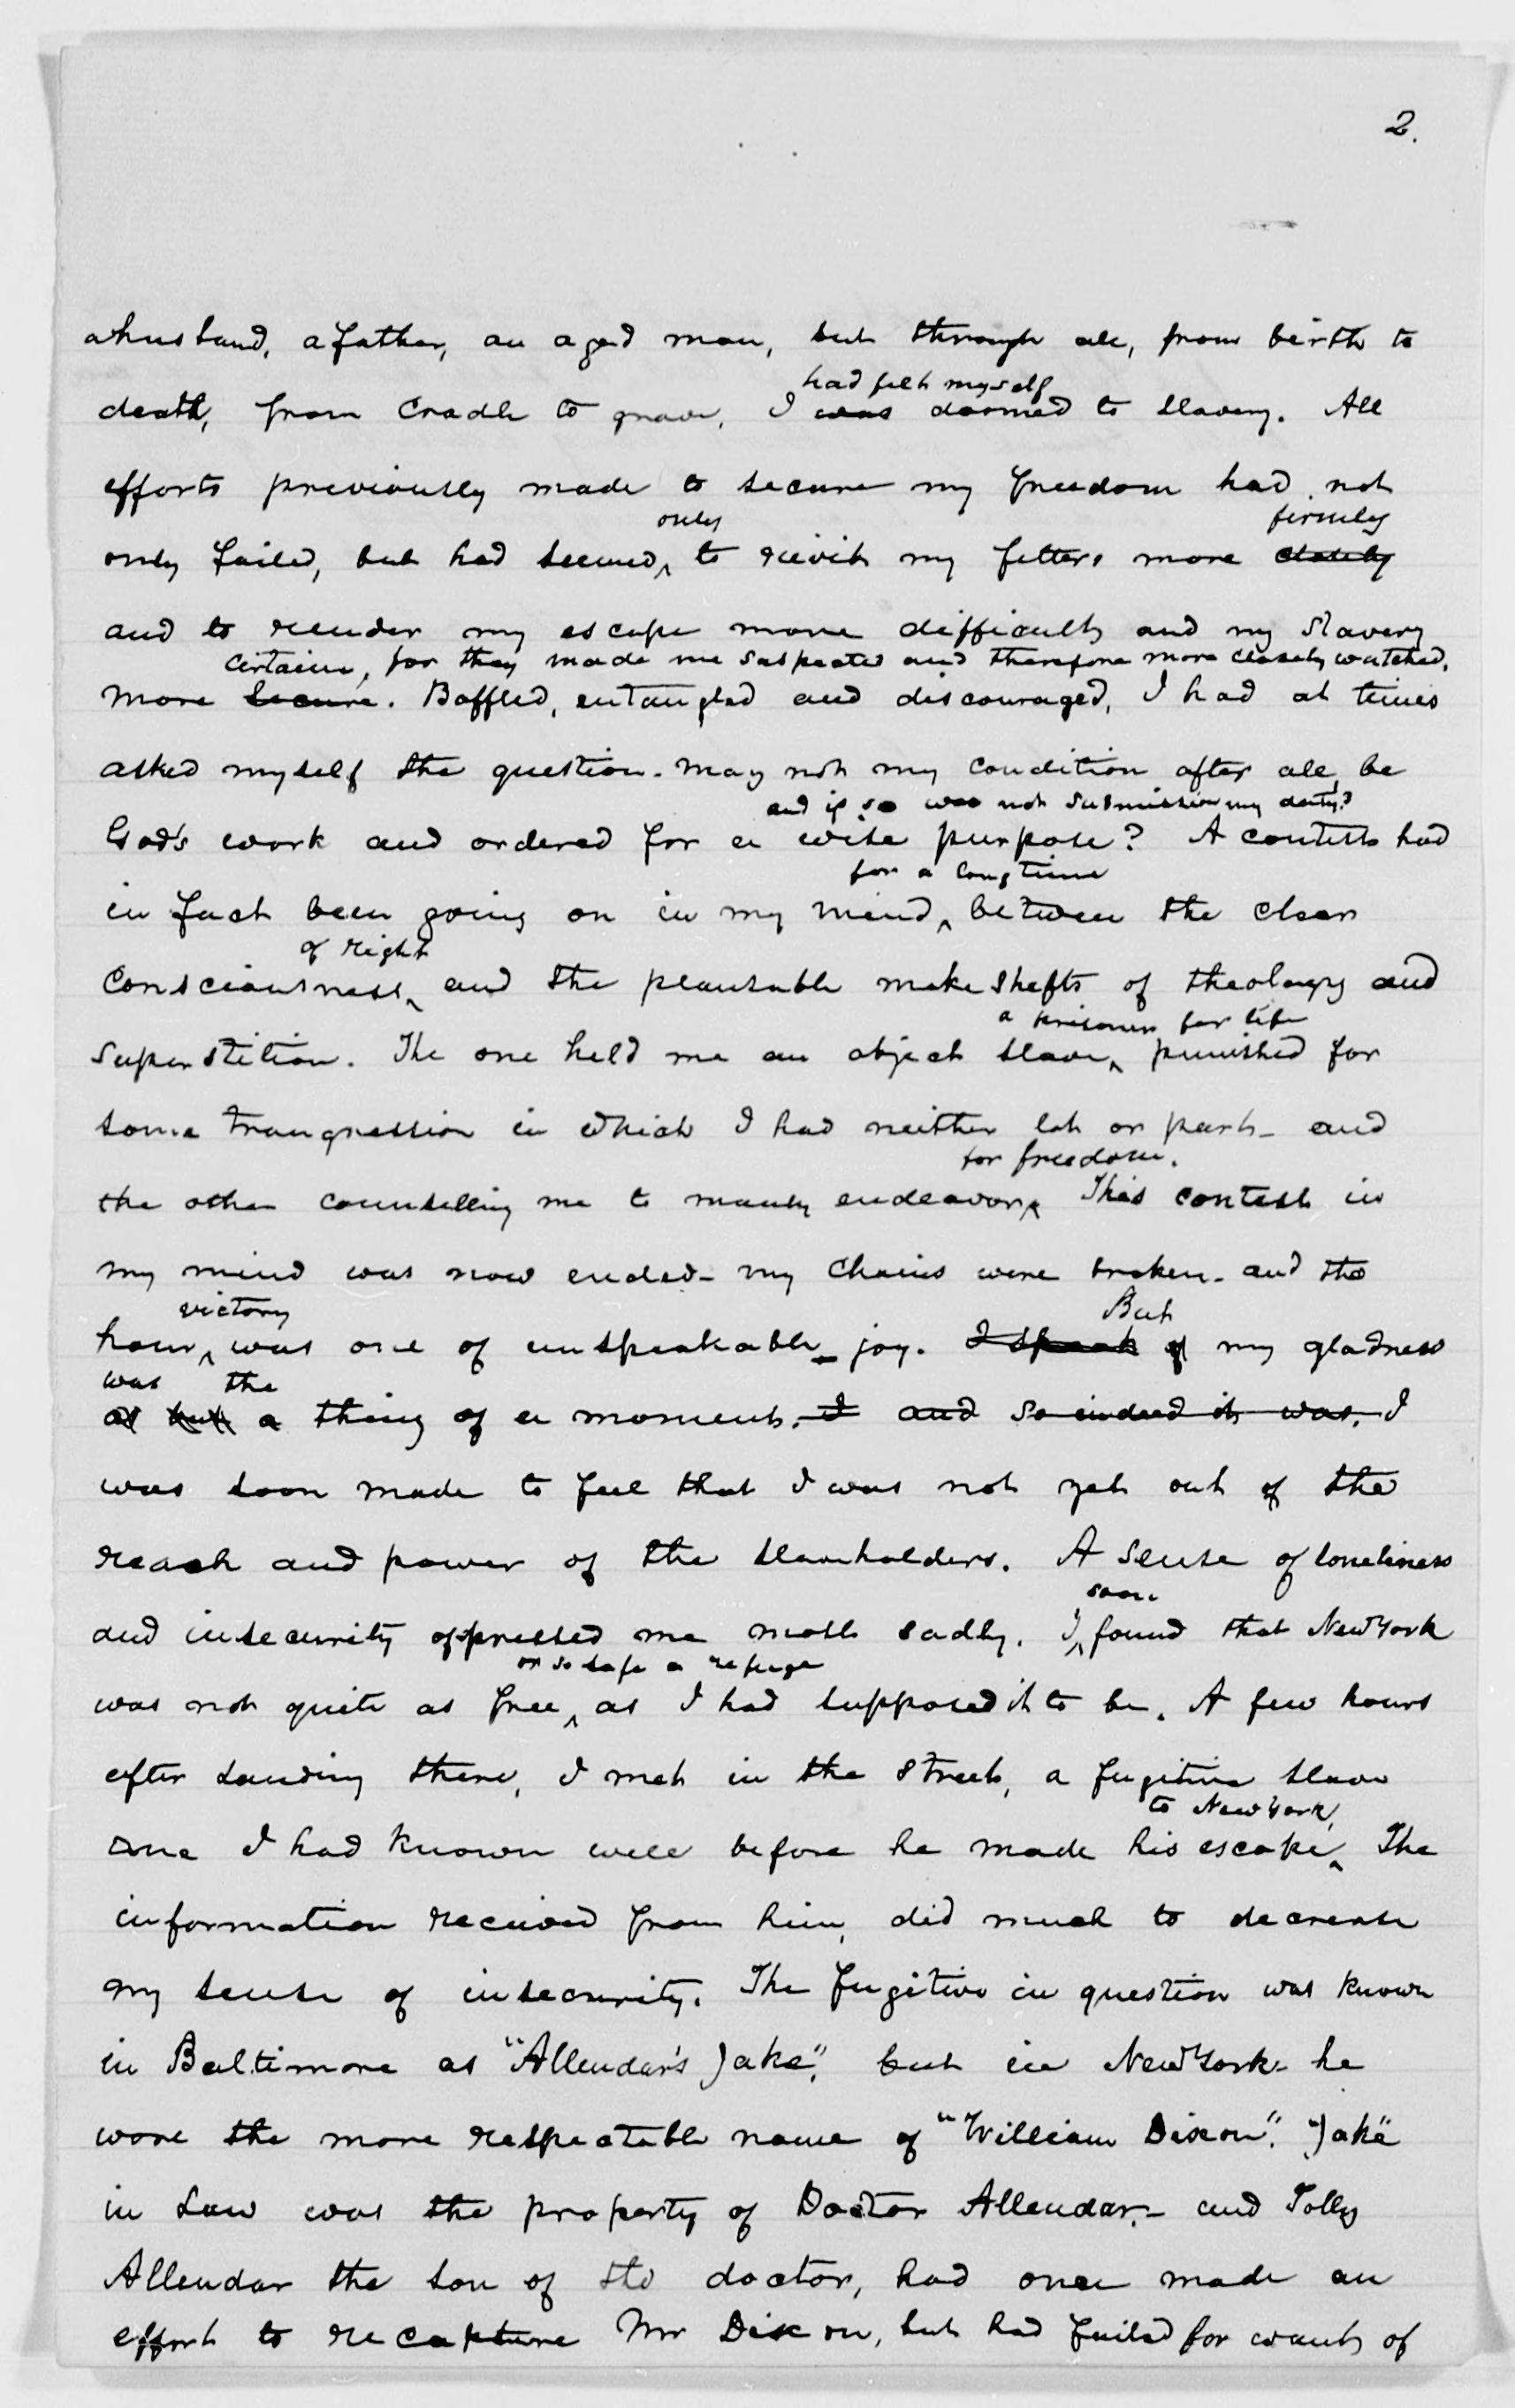 2.
a husband, a father, an aged man, but through all, from birth to
had felt myself
death, from cradle to grave, I was doomed to slavery. All
efforts previously made to secure my freedom had not
only firmly
only failed, but had seemed, to rivit my fetters more closely
and to render my escape more difficult and my slavery
certain, for they made me suspected and therefore more closely watched.
more secure. Baffled, entangled and discouraged, I had at times
asked myself the question. may not my condition after all, be
and if so was not submission my duty?
God's work and ordered for a wise purpose? A contest had
for a long time
in fact been going on in my mind, between the clear
of right
consciousness and the plausable make shifts of theology and
a prisoner for life
superstition. The one held me an abject slave, punished for
some trangression in which I had neither lot or part - and
for freedom.
the other counselling me to manly endeavor This contest in
my mind was now ended - my chains were broken - and the
victory But
hour was one of unspeakable joy. I speak of my gladness
was the
as but a thing of a moment. I and so indeed it was. I
was soon made to feel that I was not yet out of the
reach and power of the slaveholders. A sense of loneliness
soon
and insecurity oppressed me most sadly. I found that New York
or so safe a refuge
was not quite as free as I had supposed it to be. A few hours
after landing there, I met in the street, a fugitive slave
to New York,
one I had known well before he made his escape The
information received from him, did much to decrease
my sense of insecurity. The fugitive in question was known
in Baltimore as "Allendar's Jake", but in New York - he
wore the more respectable name of "William Dixon". "Jake"
in Law was the property of Doctor Allendar. - and Tolly
Allendar the son of the doctor, had once made an
effort to recapture Mr Dixon, but had failed for want of